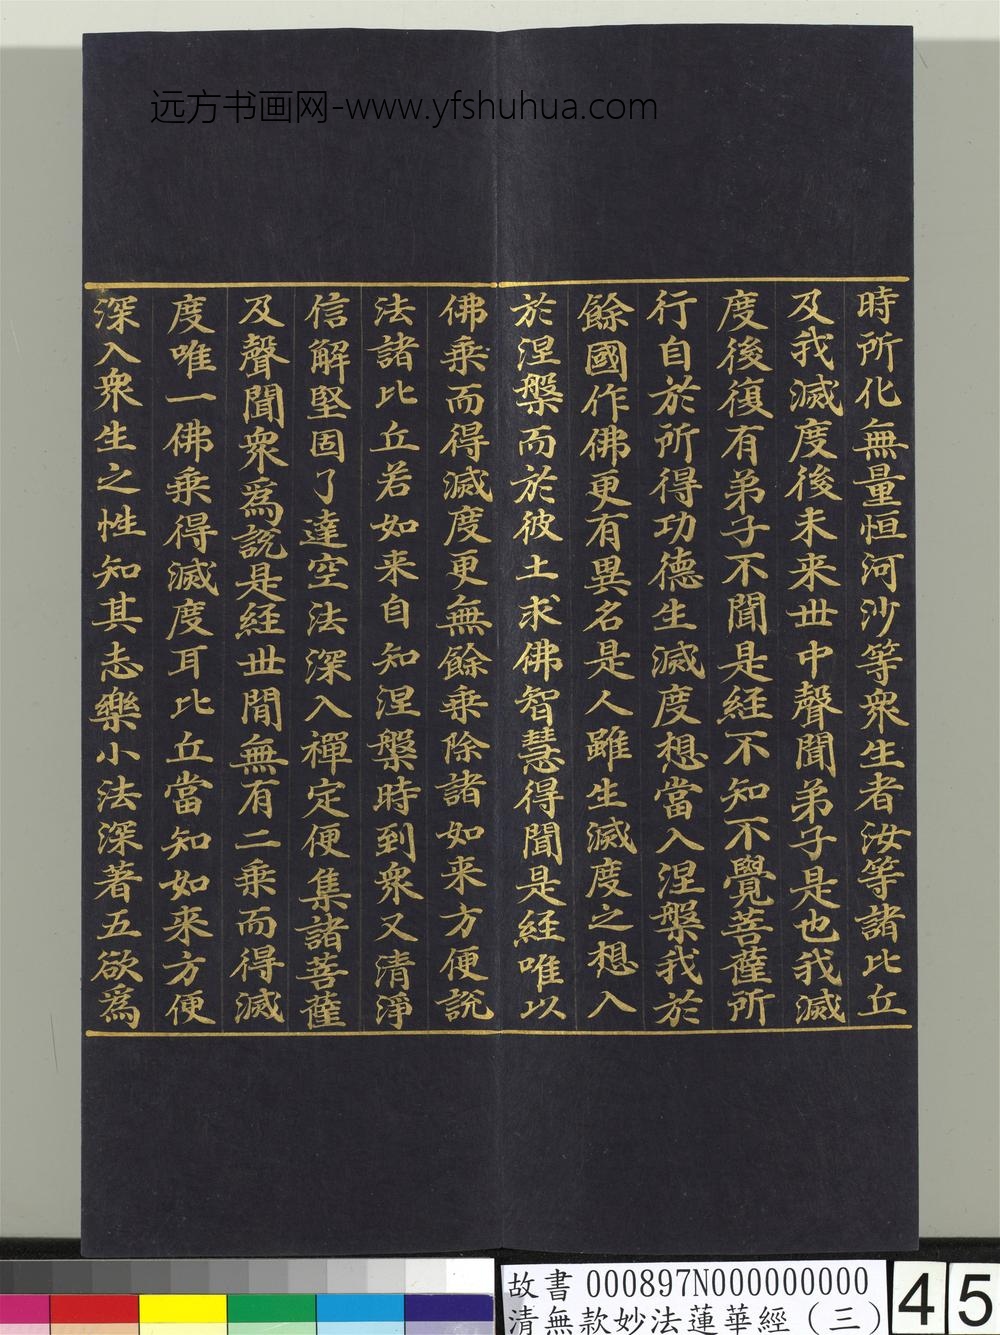 远方书画网-www.yfshuhua.com
時所化無量恒河沙等衆生者汝等諸比丘
及我滅度後未来世中聲聞弟子是也我滅
度後復有弟子不聞是経不知不覺菩薩所
行自於所得功德生滅度想當入涅槃我於
餘國作佛更有異名是人雖生滅度之想入
於涅槃而於彼土求佛智慧得聞是経唯以
佛乗而得滅度更無餘乗除諸如来方便説
法諸比丘若如来自知涅槃時到衆又清淨
信解堅固了達空法深入禪定便集諸菩薩
及聲聞衆爲説是経世間無有二乗而得滅
度唯一佛乗得滅度耳比丘當知如来方便
深入衆生之性知其志樂小法深著五欲爲
故書 000897N000000000
清無款妙法蓮華經(三)
45